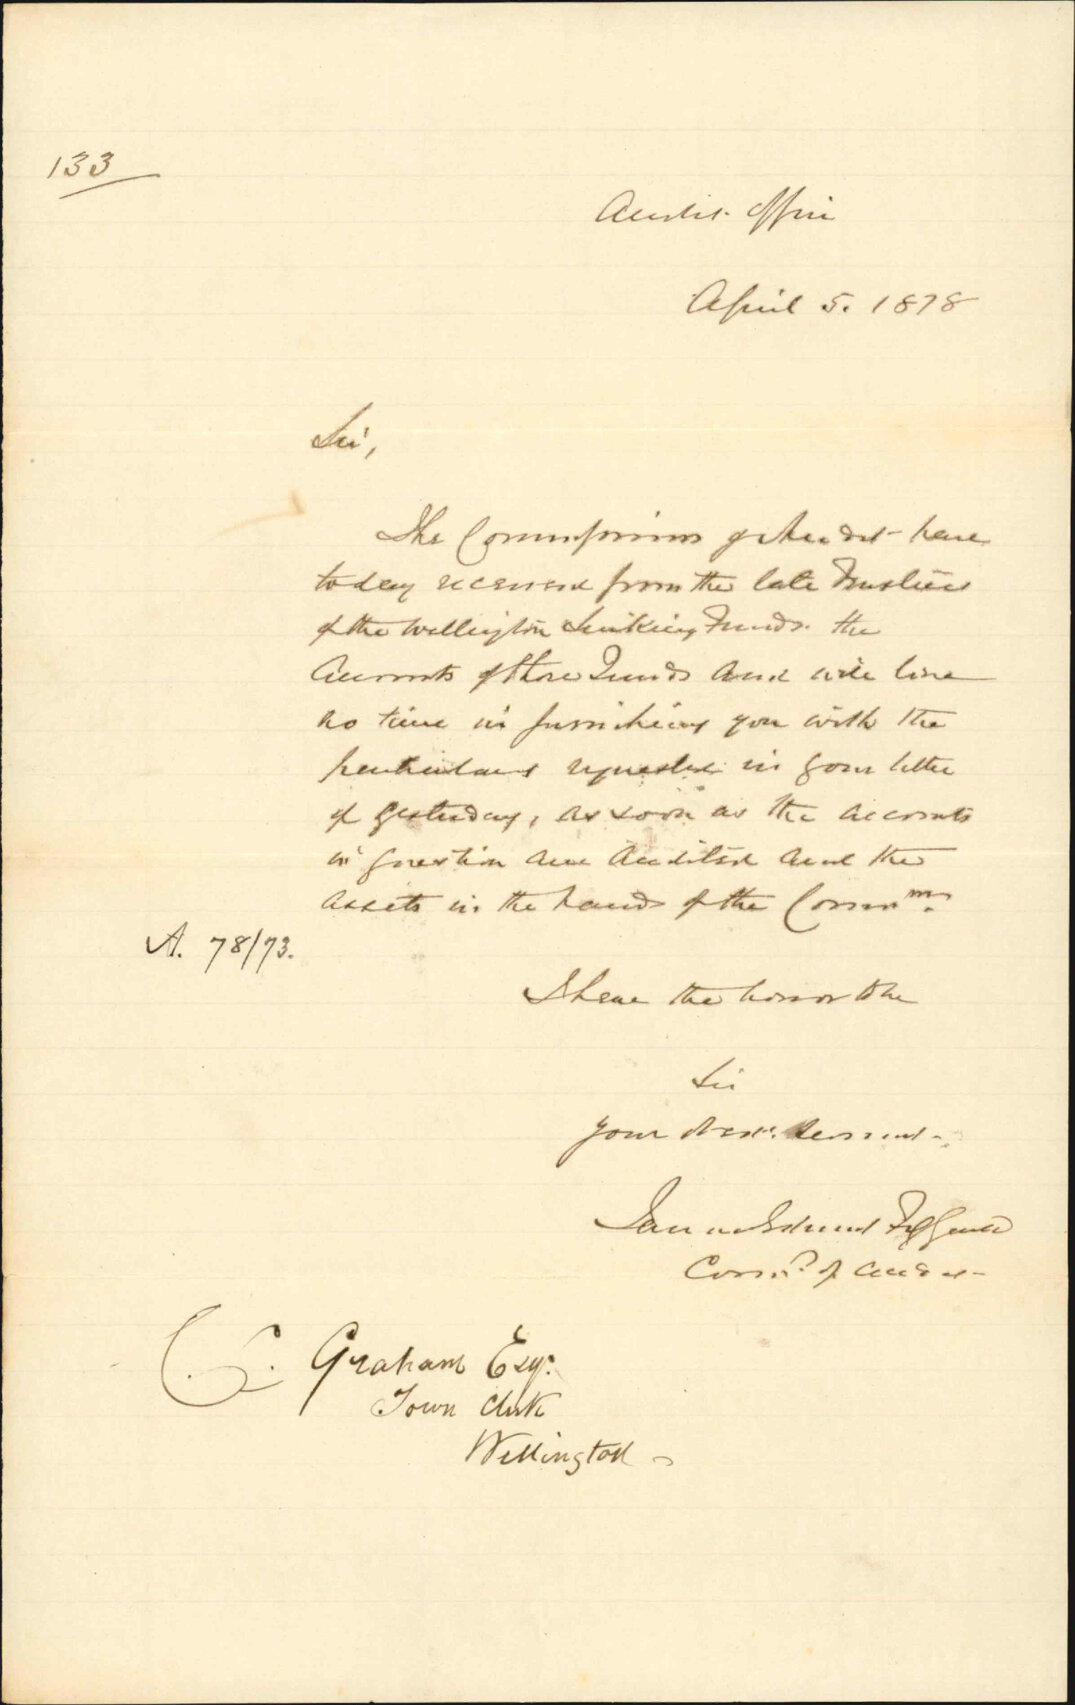 133
Audit Office
April 5. 1878
Sir,
The Commissioners of Audit have
today received from the late Trustees
of the Wellington Sinking Funds. the
Accounts of those Funds and will lose
no time in furnishing you with the
particulars requested in your letter
of yesterday, as soon as the accounts
in question are audited and the
assets in the hands of the Commrs.
A. 78/73.
I have the honor to be
Sir
Your obedt. Servant.
James Edward FitzGerald
Commr. of Audit
C. Graham Esqr.
Town Clerk
Wellington